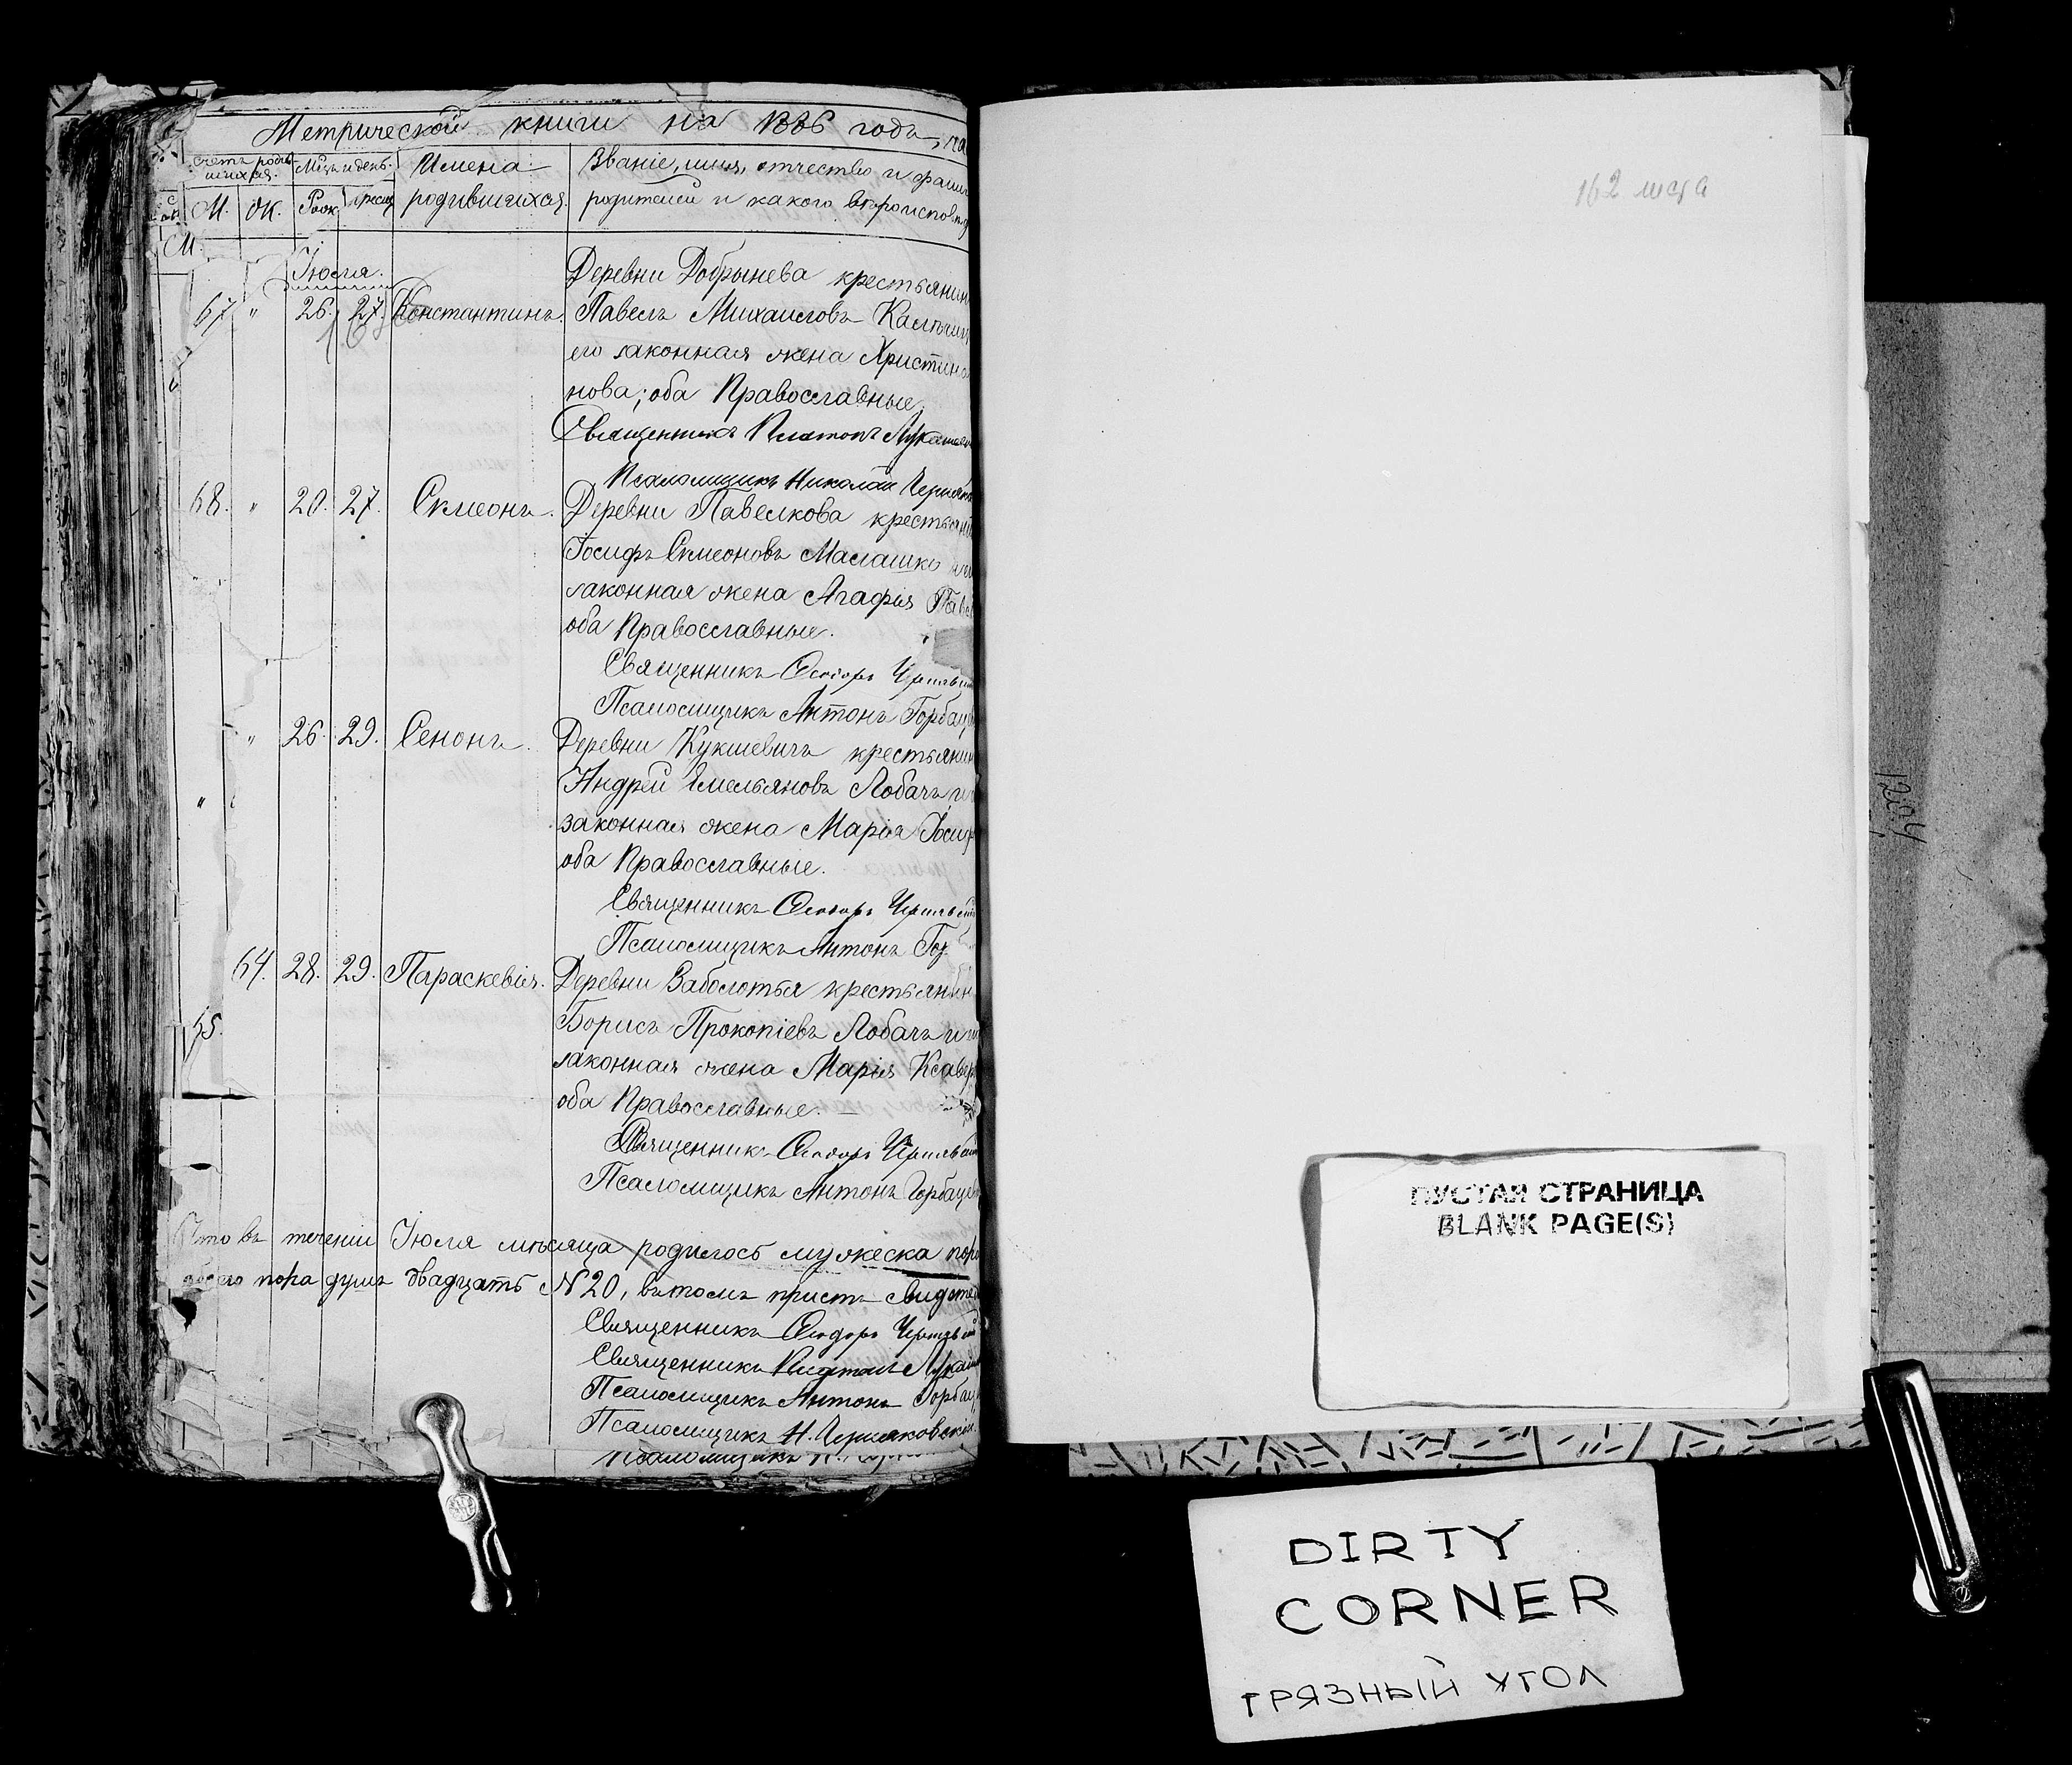 Метрической книги на 1886 годъ, ча
счетъ родив-
шихся.
Мѣцъ и день.
Имена
родившихся.
Званіе, имя, отчество и фами
родителей и какого вѣроисповѣд
М. Ж. Рож Крещ
М.
Іюля.
67 " 26. 27. Константинъ.
Деревни Добрынева крестьянин
Павелъ Михаиловъ
его законная жена Христина
нова; оба Православные.
Священникъ Платонъ
Псаломщикъ Николай
68. " 20. 27. Симеонъ.
Деревни Павелкова крестьяни
Іосифъ Симеоновъ Малашко
законная жена Агафія
оба Православные.
Священникъ Ѳеодоръ
Псаломщикъ Антонъ Горбац
" 26. 29. Сенонъ.
Деревни Кукшевичъ крестьянин
Андрей Емельяновъ Лобачъ и
законная жена Марія Іосиф
оба Православные.
Священникъ Ѳеодоръ
Псаломщикъ Антонъ Гор
64. 28. 29. Параскевія.
Деревни Заболотья крестьянин
Борисъ Прокопіевъ Лобачъ и
законная жена Марія Ксавер
оба Православные.
Священникъ Ѳеодоръ
Псаломщикъ Антонъ Горбаце
Что въ теченіи Іюля мѣсяца родилось мужеска пола
обоего пола душъ двадцать N 20, въ томъ
Священникъ Ѳеодоръ
Священникъ Платонъ
Псаломщикъ Антонъ Горбац
Псаломщикъ Н. Черняковскій
162
1204
ПУСТАЯ СТРАНИЦА
BLANK PAGE(S)
DIRTY
CORNER
ГРЯЗНЫЙ УГОЛ